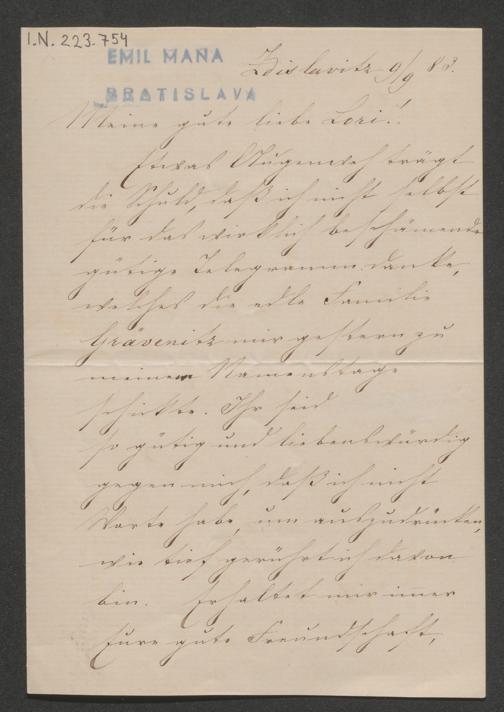 I.N. 223.754
EMIL MAŇA
BRATISLAVA
Zdislavitz 9/9 83.
Meine gute liebe Lori!
Etwas Augenweh trägt
die Schuld, daß ich nicht selbst
für das wirklich beschämende
gütige Telegramm danke,
welches die edle Familie
Grävenitz mir gestern zu
meinem Namenstage
schickte. Ihr seid
so gütig und liebenswürdig
gegen mich, daß ich nicht
Worte habe, um auszudrücken,
wie tief gerührt ich davon
bin. Erhaltet mir immer
Eure gute Freundschaft,